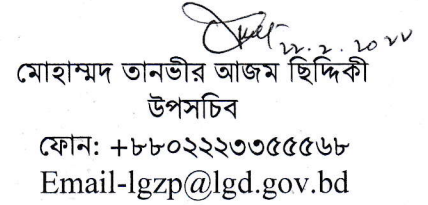 ২২.২.২০২২
মোহাম্মদ তানভীর আজম ছিদ্দিকী
উপসচিব
ফোন: +৮৮০২২২৩৩৫৫৫৬৮
Email-lgzp@lgd.gov.bd